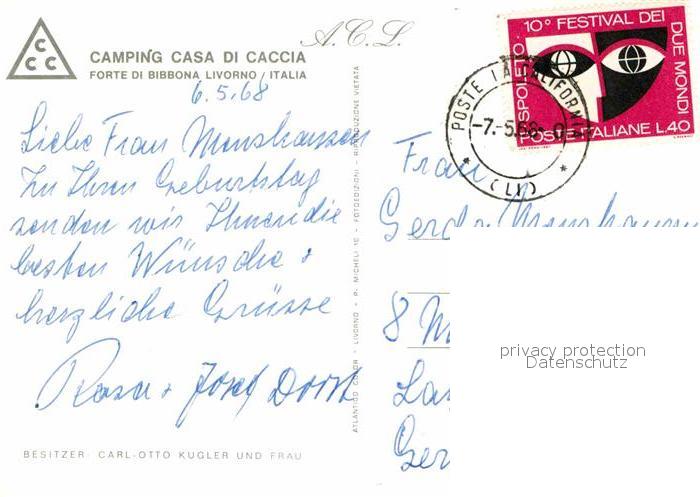 A.C.L.
CCC
CAMPING CASA DI CACCIA
FORTE DI BIBBONA LIVORNO / ITALIA
6.5.68
Liebe Frau Monshausen
Zu Ihren Geburtstag
senden wir Ihnen die
besten Wünsche +
herzliche Grüsse
Rosa + Josef
BESITZER: CARL-OTTO KUGLER UND FRAU
ATLANTICO COLOR - LIVORNO - P. MICHELI - FOTOEDIZIONI - RIPRODUZIONE VIETATA
10° FESTIVAL DEI DUE MONDI
SPOLETO
POSTE ITALIANE L.40
POSTE LA CALIFORNIA
-7.-5.68
(LI)
Frau
Gerda Monshausen
8 M
privacy protection
Datenschutz